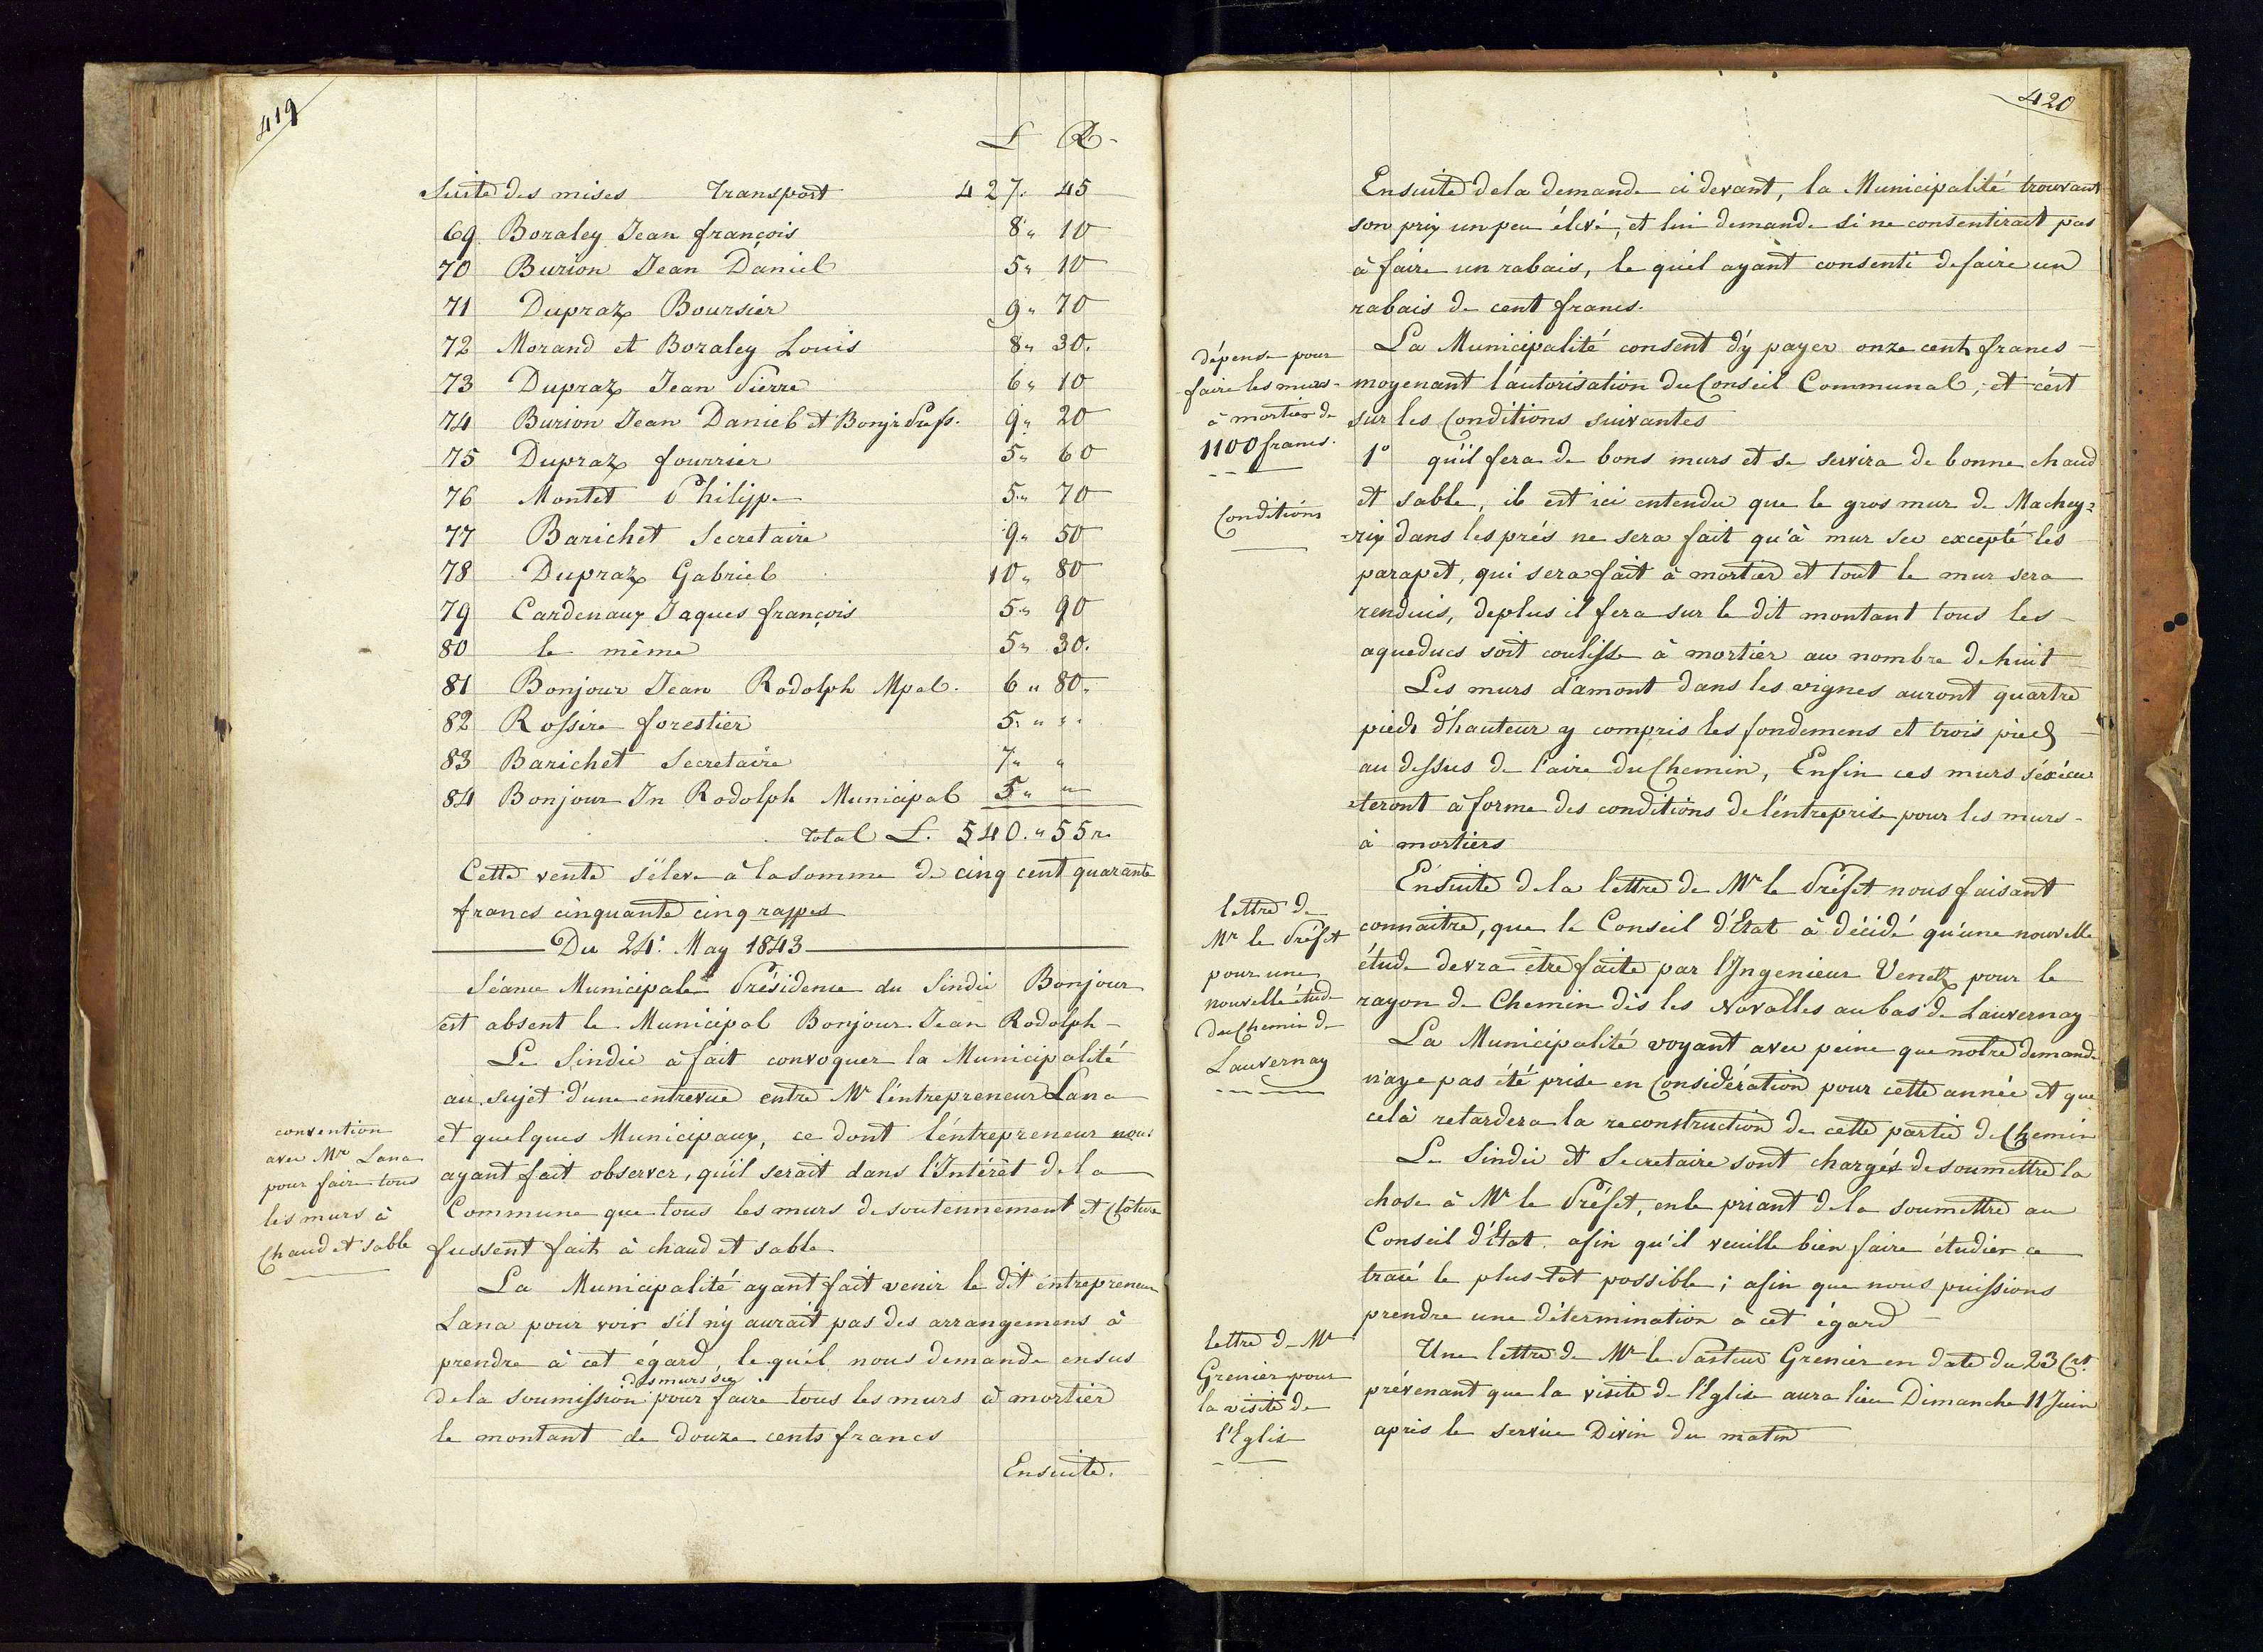 419
L R
Suite des mises Transport 427. 45
69 Boraley Jean françois 8 " 10
70 Burion Jean Daniel 5 " 10
71 Dupraz Boursier 9 " 70
72 Morand et Boraley Louis 8 " 30.
73 Dupraz Jean Pierre 6 " 10
74 Burion Jean Daniel et Bonjr 9 " 20
75 Dupraz fourrier 5 " 60
76 Montet Philipe 5 " 70
77 Barichet Secretaire 9 " 50
78 Dupraz Gabriel 10 " 80
79 Cardenaux Jaques françois 5 " 90
80 le même 5 " 30.
81 Bonjour Jean Rodolph Mpal. 6 " 80 "
82 Rossire forestier 5 " "
83 Barichet Secretaire 7 " "
84 Bonjour Jn Rodolph Municipal 5 " "
Total L. 540. " 55 r.
Cette vente s'éleve à la somme de cinq cent quarante
francs cinquante cinq rappes
Du 24e. May 1843
Séance Municipale Présidence du Sindic Bonjour
est absent le Municipal Bonjour Jean Rodolph
Le Sindic à fait convoquer la Municipalité
au sujet d'une entrevue entre Mr l'entrepreneur Lana
et quelques Municipaux, ce dont l'entrepreneur nous
ayant fait observer, qu'il serait dans l'Intérêt de la
Commune que tous les murs de soutennement et Clôture
fussent faits à chaud et sable
La Municipalité ayant fait venir le dit entrepreneur
Lana pour voir s'il n'y aurait pas des arrangemens à
prendre à cet égard, le quel nous demande en sus
de la soumission des murs sec pour faire tous les murs à mortier
le montant de douze cents francs
Ensuite.
convention
avec Mr Lana
pour faire tous
les murs à
Chaud et sable
420
Ensuite de la demande ci devant, la Municipalité trouvant
son prix un peu élevé, et lui demande si ne consentirait pas
à faire un rabais, le quel ayant consenti de faire un
rabais de cent francs.
La Municipalité consent d'y payer onze cents francs
moyenant l'autorisation du Conseil Communal, et c'est
sur les Conditions suivantes
1° qu'il fera de bons murs et se servira de bonne chaud
et sable, il est ici entendu que le gros mur de Machey=
=rix dans les prés ne sera fait qu'à mur sec excepté les
parapet, qui sera fait à mortier et tout le mur sera
renduis, deplus il fera sur le dit montant tous les
aqueducs soit coulisse à mortier au nombre de huit
Les murs d'amont dans les vignes auront quartre
pieds d'hauteur y compris les fondemens et trois pieds
au dessus de l'aire du Chemin, Enfin ces murs s'éxécu
=teront à forme des conditions de l'entreprise pour les murs
à mortiers
Ensuite de la lettre de Mr le Préfet nous faisant
connaitre, que le Conseil d'Etat à décidé qu'une nouvelle
étude devra être faite par l'Ingenieur Venetz pour le
rayon de Chemin dès les Novalles au bas de Lauvernay
La Municipalité voyant avec peine que notre demande
n'aye pas été prise en Considération pour cette année et que
celà retardera la reconstruction de cette partie de Chemin
Le Sindic et Secretaire sont chargés de soumettre la
chose à Mr le Préfet, en le priant de la soumettre au
Conseil d'Etat afin qu'il veuille bien faire étudier ce
tracé le plus-tot possible; afin que nous puissions
prendre une détermination à cet égard
Une lettre de Mr le Pasteur Grenier en date du 23 Crt
prévenant que la visite de l'Eglise aura lieu Dimanche 11 Juin
apris le service Divin du matin
dépense pour
faire les murs
à mortier de
1100 francs.
Conditions
lettre de
Mr le Préfet
pour une
nouvelle étude
du Chemin de
Lauvernay
lettre de Mr
Grenier pour
la visite de
l'Eglise